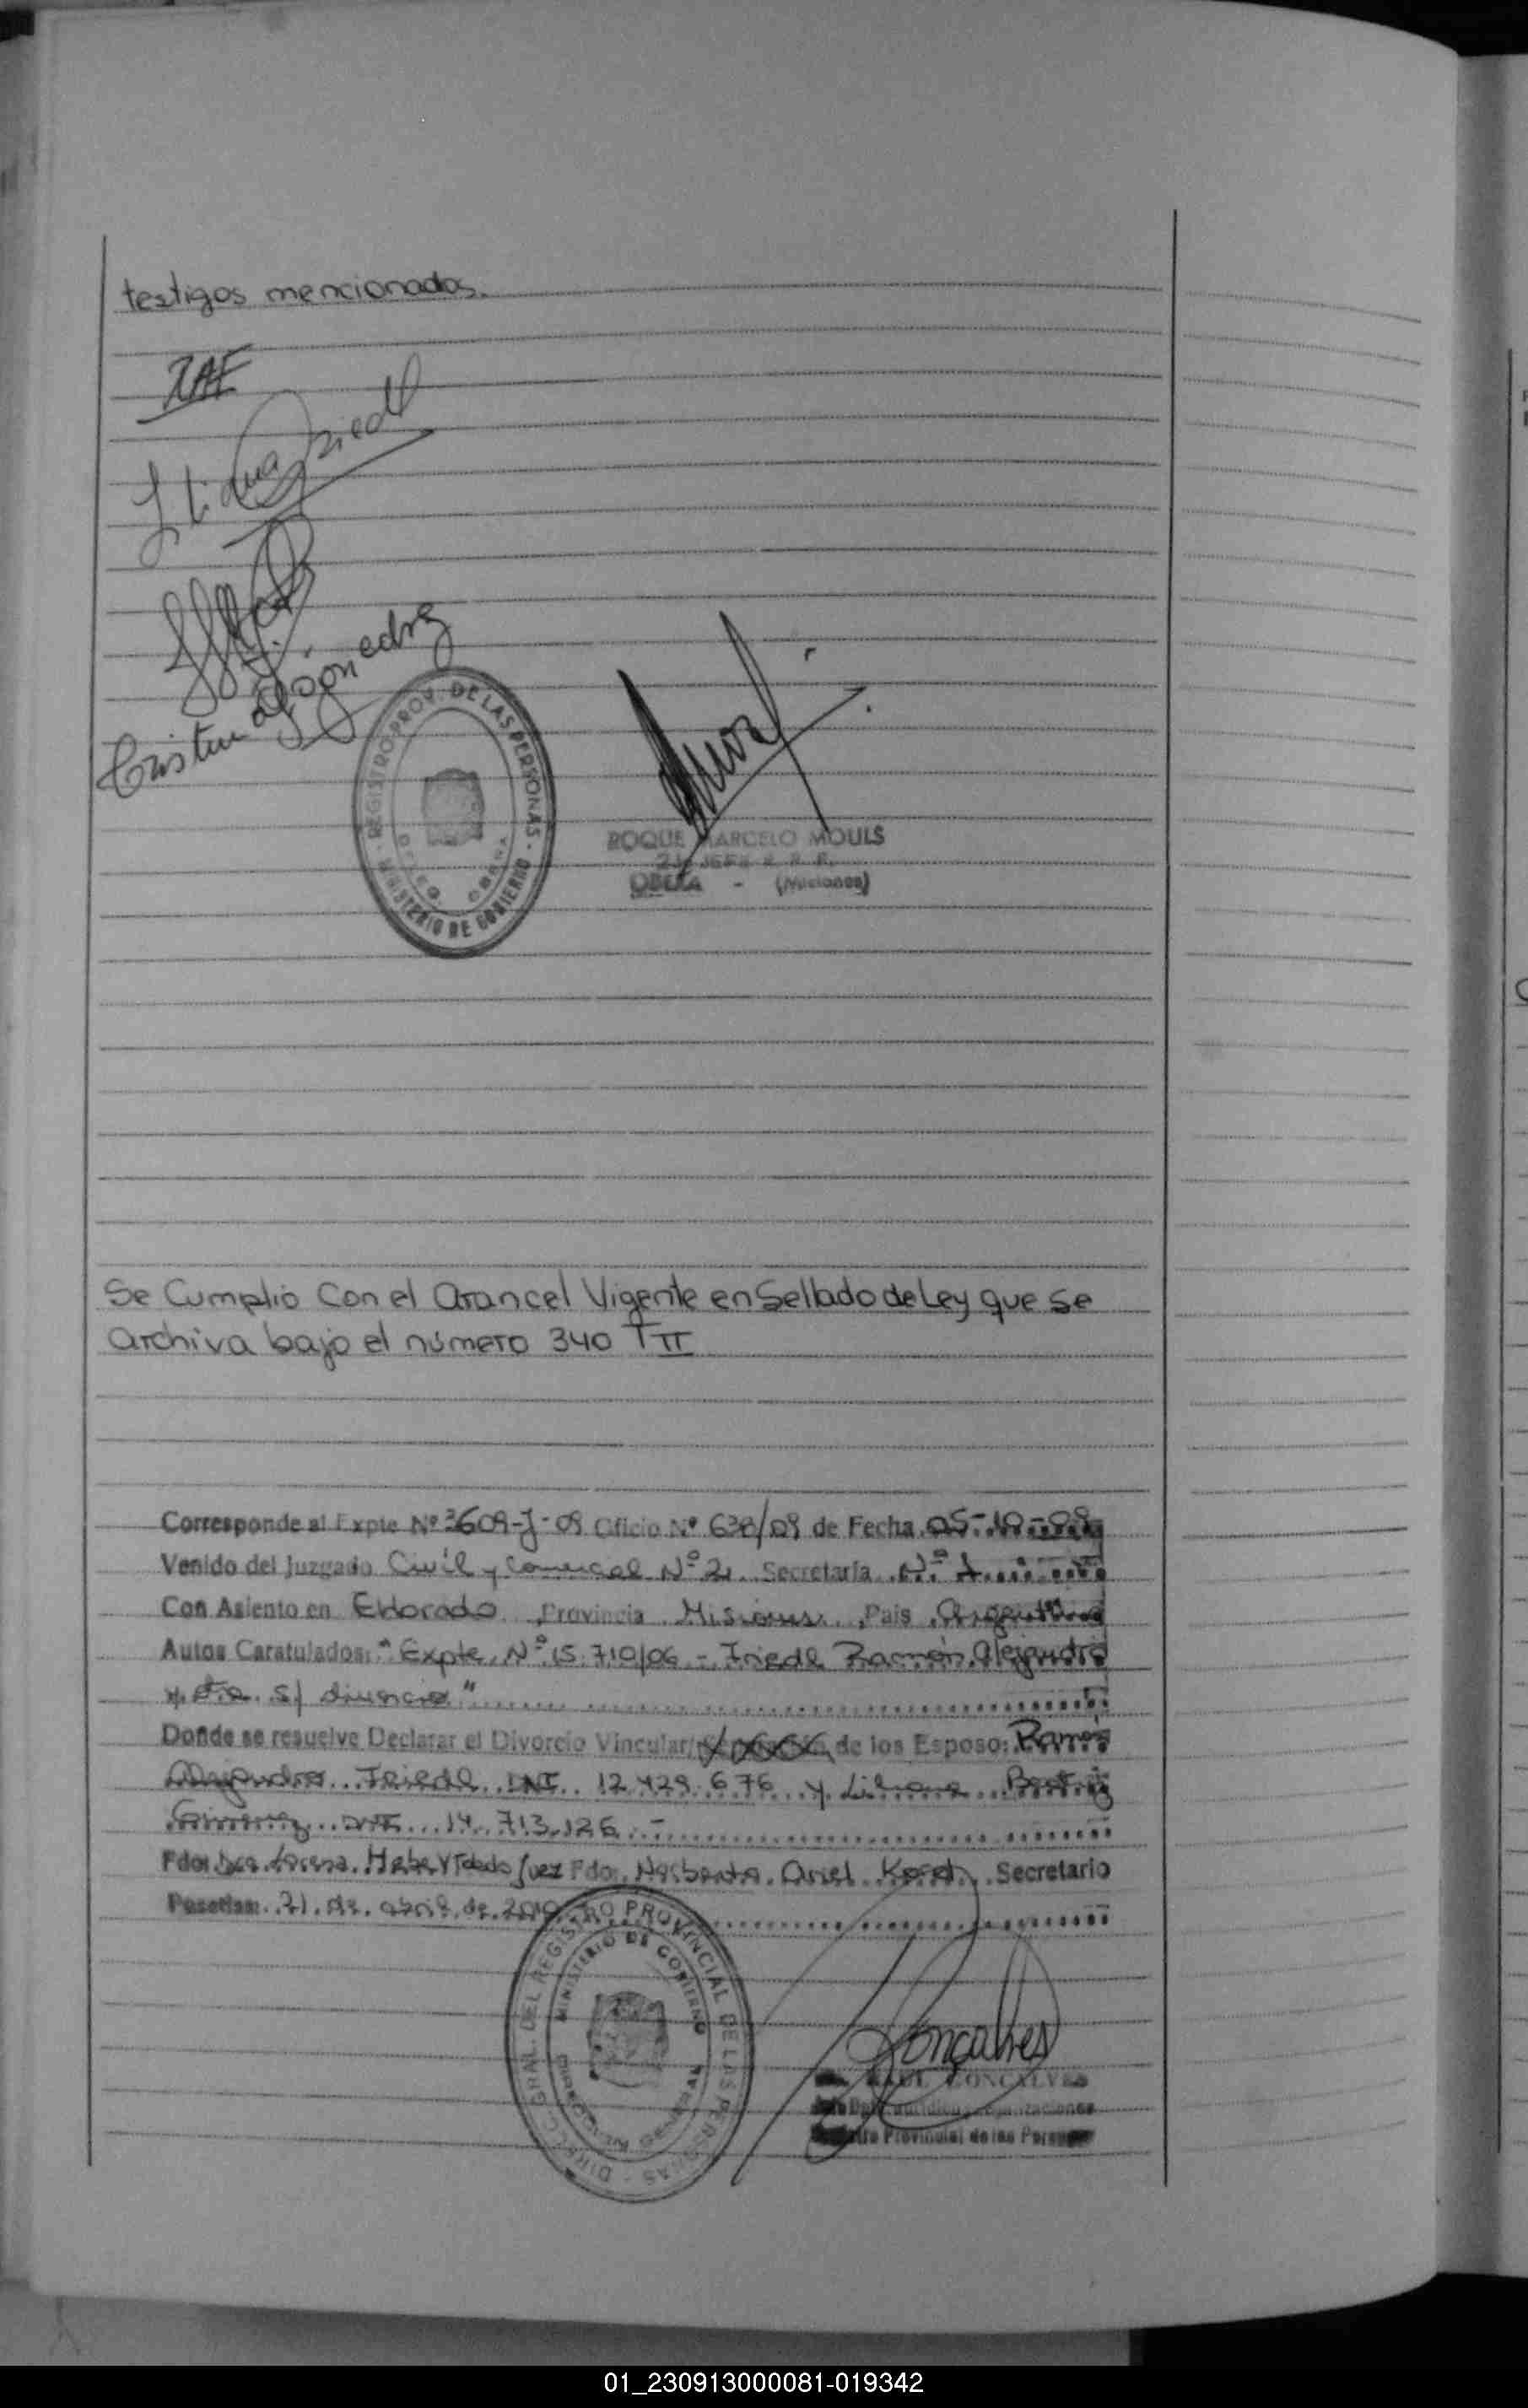 testigos mencionados.
RAF
Liliana Friedl
Cristina
REGISTRO PROV. DE LAS PERSONAS - MINISTERIO DE GOBIERNO -
DELEG. OBERA
ROQUE MARCELO MOULS
OBERA - (Misiones)
Se Cumplió Con el Arancel Vigente en Sellado de Ley que se
archiva bajo el número 340 T II
Corresponde al Expte Nº 3609-J-09 Oficio Nº 638/09 de Fecha 05-10-09
Venido del Juzgado Civil y Comercial Nº 2. Secretaría Nº 1
Con Asiento en Eldorado, Provincia Misiones, Pais Argentina
Autos Caratulados: "Expte. Nº 15.710/06 - Friedl Ramón Alejandro
y otra s/ divorcio"
Donde se resuelve Declarar el Divorcio Vincular/ de los Esposo: Ramón
Alejandro Friedl DNI 12.429.676 y Liliana Beatriz
Gimenez DNI 14.713.126.-
Fdo: Dra. Hebe Toledo Juez Fdo. Norberto Ariel Korol Secretario
Posadas: 21 de abril de 2010
DIRECC. GRAL. DEL REGISTRO PROVINCIAL DE LAS PERSONAS -
MINISTERIO DE GOBIERNO
Goncalves
RAUL GONCALVES
Registro Provincial de las Personas
01_230913000081-019342